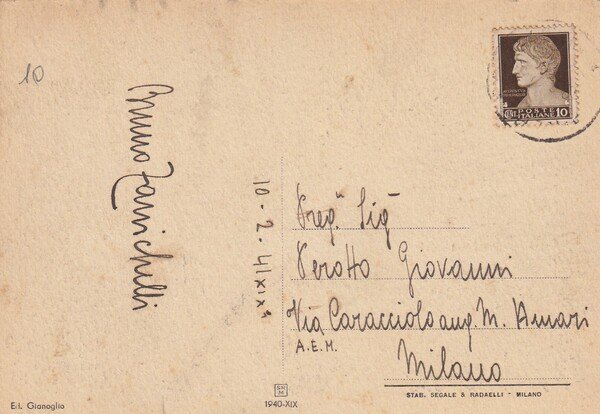 10
Bruno Zanichelli
10-2-41 XIX°
POSTE
ITALIANE
CENT. 10
Preg. Sig
Perotto Giovanni
Via Caracciolo ang. M. Amari
A.E.M.
Milano
STAB. SEGALE & RADAELLI - MILANO
Ed. Gianoglio
1940-XIX